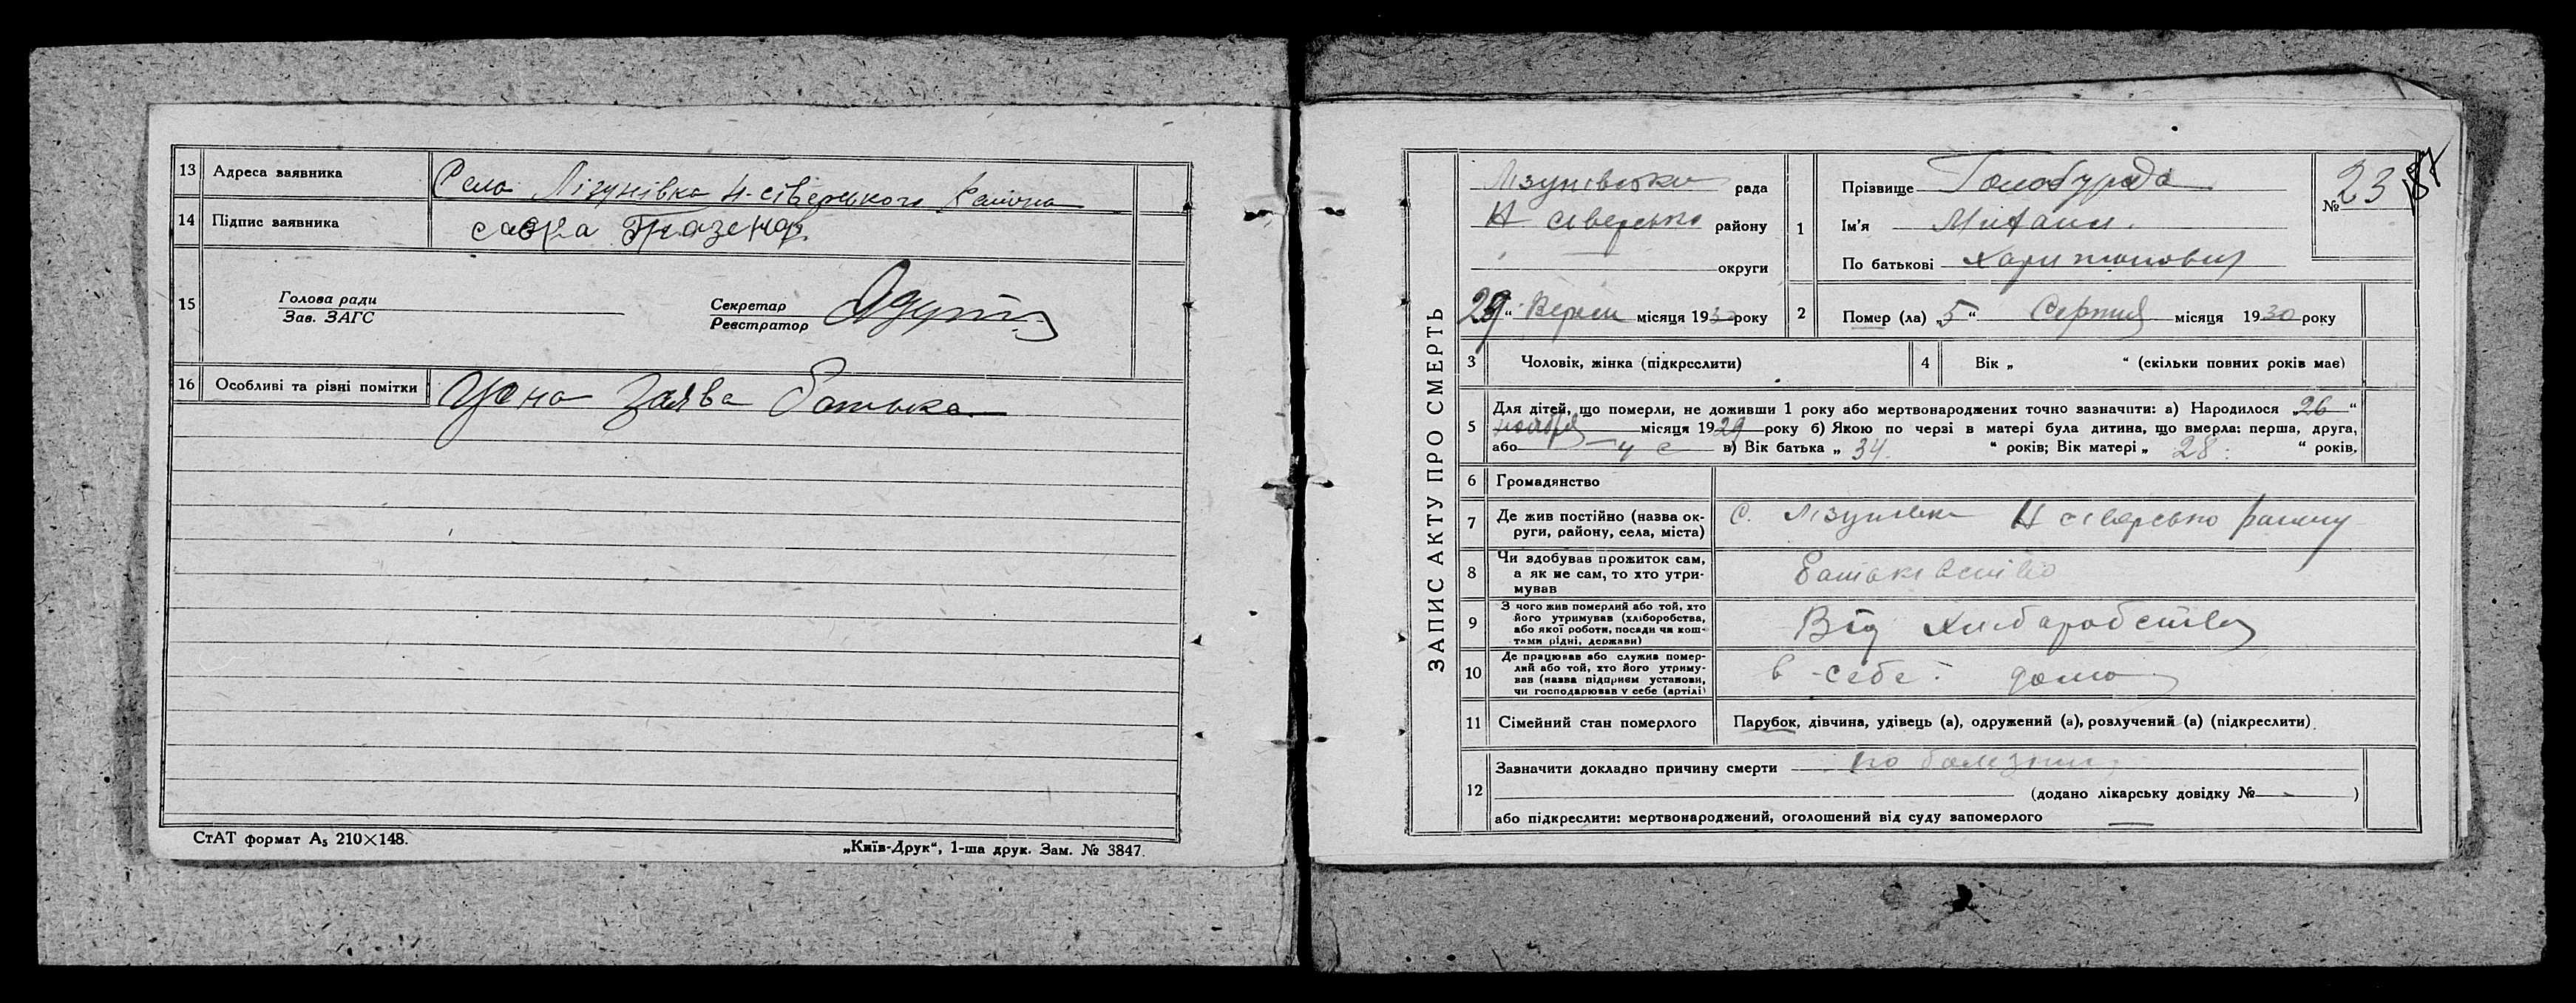 13 Адреса заявника Село Лізунівка Н-сіверського Району
14 Підпис заявника
15 Голова ради
Зав. ЗАГС
Секретар
Реєстратор
16 Особливі та різні помітки Усна Заява батька
СтАТ формат А₅ 210×148.
„Київ-Друк“, 1-ша друк. Зам. № 3847.
ЗАПИС АКТУ ПРО СМЕРТЬ
Лізунівська рада
Н сіверсько району
округи
29 “ Вересн місяця 1930 року
1 Прізвище Голобурда
Ім'я Михаил.
По батькові Харитонович
№ 23
2 Помер (ла) „5“ Серпня місяця 1930 року
3 Чоловік, жінка (підкреслити)
4 Вік „ “ (скільки повних років має)
5 Для дітей, що померли, не доживши 1 року або мертвонароджених точно зазначити: а) Народилося „26“
ноября місяця 1929 року б) Якою по черзі в матері була дитина, що вмерла: перша, друга,
або в) Вік батька „ 34. “ років; Вік матері „ 28 “ років.
6 Громадянство
7 Де жив постійно (назва ок-
руги, району, села, міста)
с. Лізунівка Н сіверсько району
8 Чи здобував прожиток сам,
а як не сам, то хто утри-
мував
9 З чого жив померлий або той, хто
його утримував (хліборобства,
або якої роботи, посади чи кош-
тами рідні, держави)
Від
10 Де працював або служив помер-
лий або той, хто його утриму-
вав (назва підприєм установи,
чи господарював у себе (артілі)
в себе дома
11 Сімейний стан померлого Парубок, дівчина, удівець (а), одружений (а), розлучений (а) (підкреслити).
12 Зазначити докладно причину смерти по болезни
(додано лікарську довідку № )
або підкреслити: мертвонароджений, оголошений від суду запомерлого